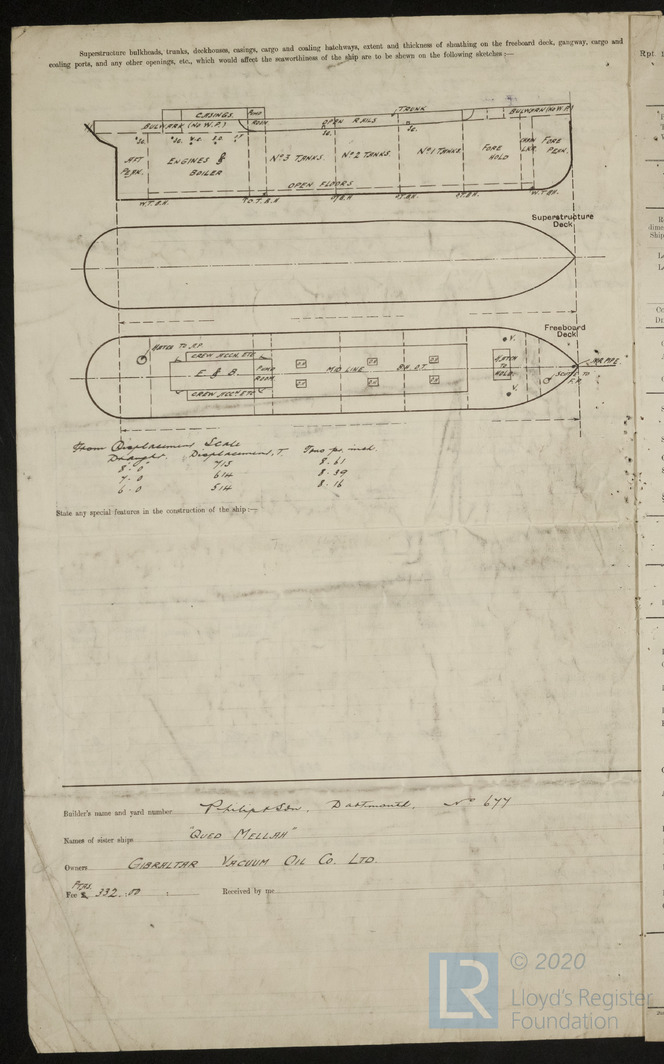 Superstructure bulkheads, trunks, deckhouses, casings, cargo and coaling hatchways, extent and thickness of sheathing on the freeboard deck, gangway, cargo and
coaling ports, and any other openings, etc., which would affect the seaworthiness of the ship are to be shewn on the following sketches:—
CASINGS. PUMP ROOM TRUNK
BULWARK (NO W.P.) OPEN RAILS BULWARK (NO W.P.)
AFT PEAK. ENGINES & BOILER Nº3 TANKS. Nº2 TANKS. Nº1 TANKS. FORE HOLD CHAIN LKR. FORE PEAK.
OPEN FLOORS
W.T.B.H. O.T.B.H. O.T.B.H. O.T.B.H. O.T.B.H. W.T.B.H.
Superstructure
Deck
Freeboard
Deck
HATCH TO A.P.
CREW ACCM. ETC
E & B. PUMP ROOM MID LINE BH. O.T. HATCH TO HOLD
V.
V.
CREW ACCM. ETC
HR. PIPE.
SCUTTLE TO F.P.
From Displacement Scale
Draught. Displacement, T Tons per inch.
8. 0 715 8.61
7. 0 614 8.39
6. 0 514 8.16
State any special features in the construction of the ship:—
Builder's name and yard number Philip & Son. Dartmouth. Nº 677
Names of sister ships "OUED MELLAH"
Owners GIBRALTAR VACUUM OIL CO. LTD.
PTAS.
Fee £ 332 : 00 : Received by me
Rpt
© 2020
LR
Lloyd's Register
Foundation